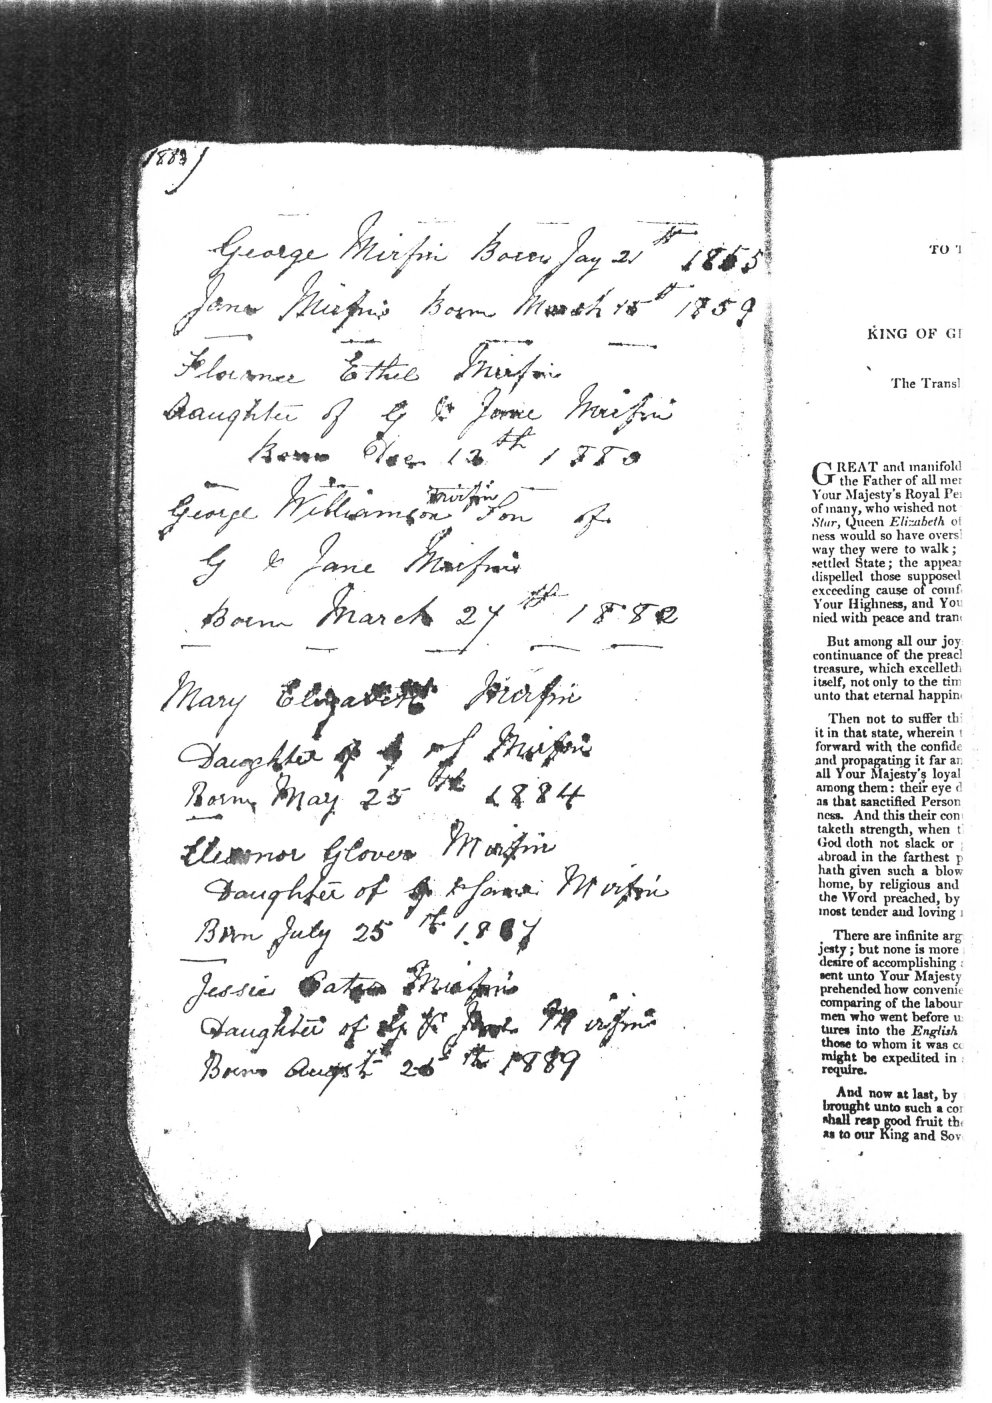 1883
George Mirfin Born Jay 21st 1855
Jane Mirfin Born March 15th 1859
Florence Ethel Mirfin
Daughter of G & Jane Mirfin
Born Dec 13th 1880
Mirfin
George Williamson Son of
G & Jane Mirfin
Born March 27th 1882
Mary Elizabeth Mirfin
Daughter of G & J Mirfin
Born May 25th 1884
Eleanor Glover Mirfin
Daughter of G & Jane Mirfin
Born July 25th 1887
Jessie Mirfin
Daughter of G & Jane Mirfin
Born Augst th 1889
TO T
KING OF G
The Transl
GREAT and manifold
the Father of all mer
Your Majesty's Royal Pe
of many, who wished not
Star, Queen Elizabeth of
ness would so have overs
way they were to walk;
settled State; the appea
dispelled those supposed
exceeding cause of comf
Your Highness, and You
nied with peace and tran
But among all our joy
continuance of the preach
treasure, which excelleth
itself, not only to the tim
unto that eternal happin
Then not to suffer thi
it in that state, wherein t
forward with the confide
and propagating it far an
all Your Majesty's loyal
among them: their eye d
as that sanctified Person
ness. And this their con
taketh strength, when t
God doth not slack or
abroad in the farthest p
hath given such a blow
home, by religious and
the Word preached, by
most tender and loving
There are infinite arg
jesty; but none is more
desire of accomplishing
sent unto Your Majesty
prehended how convenie
comparing of the labour
men who went before u
tures into the English
those to whom it was co
might be expedited in
require.
And now at last, by
brought unto such a con
shall reap good fruit the
as to our King and Sov